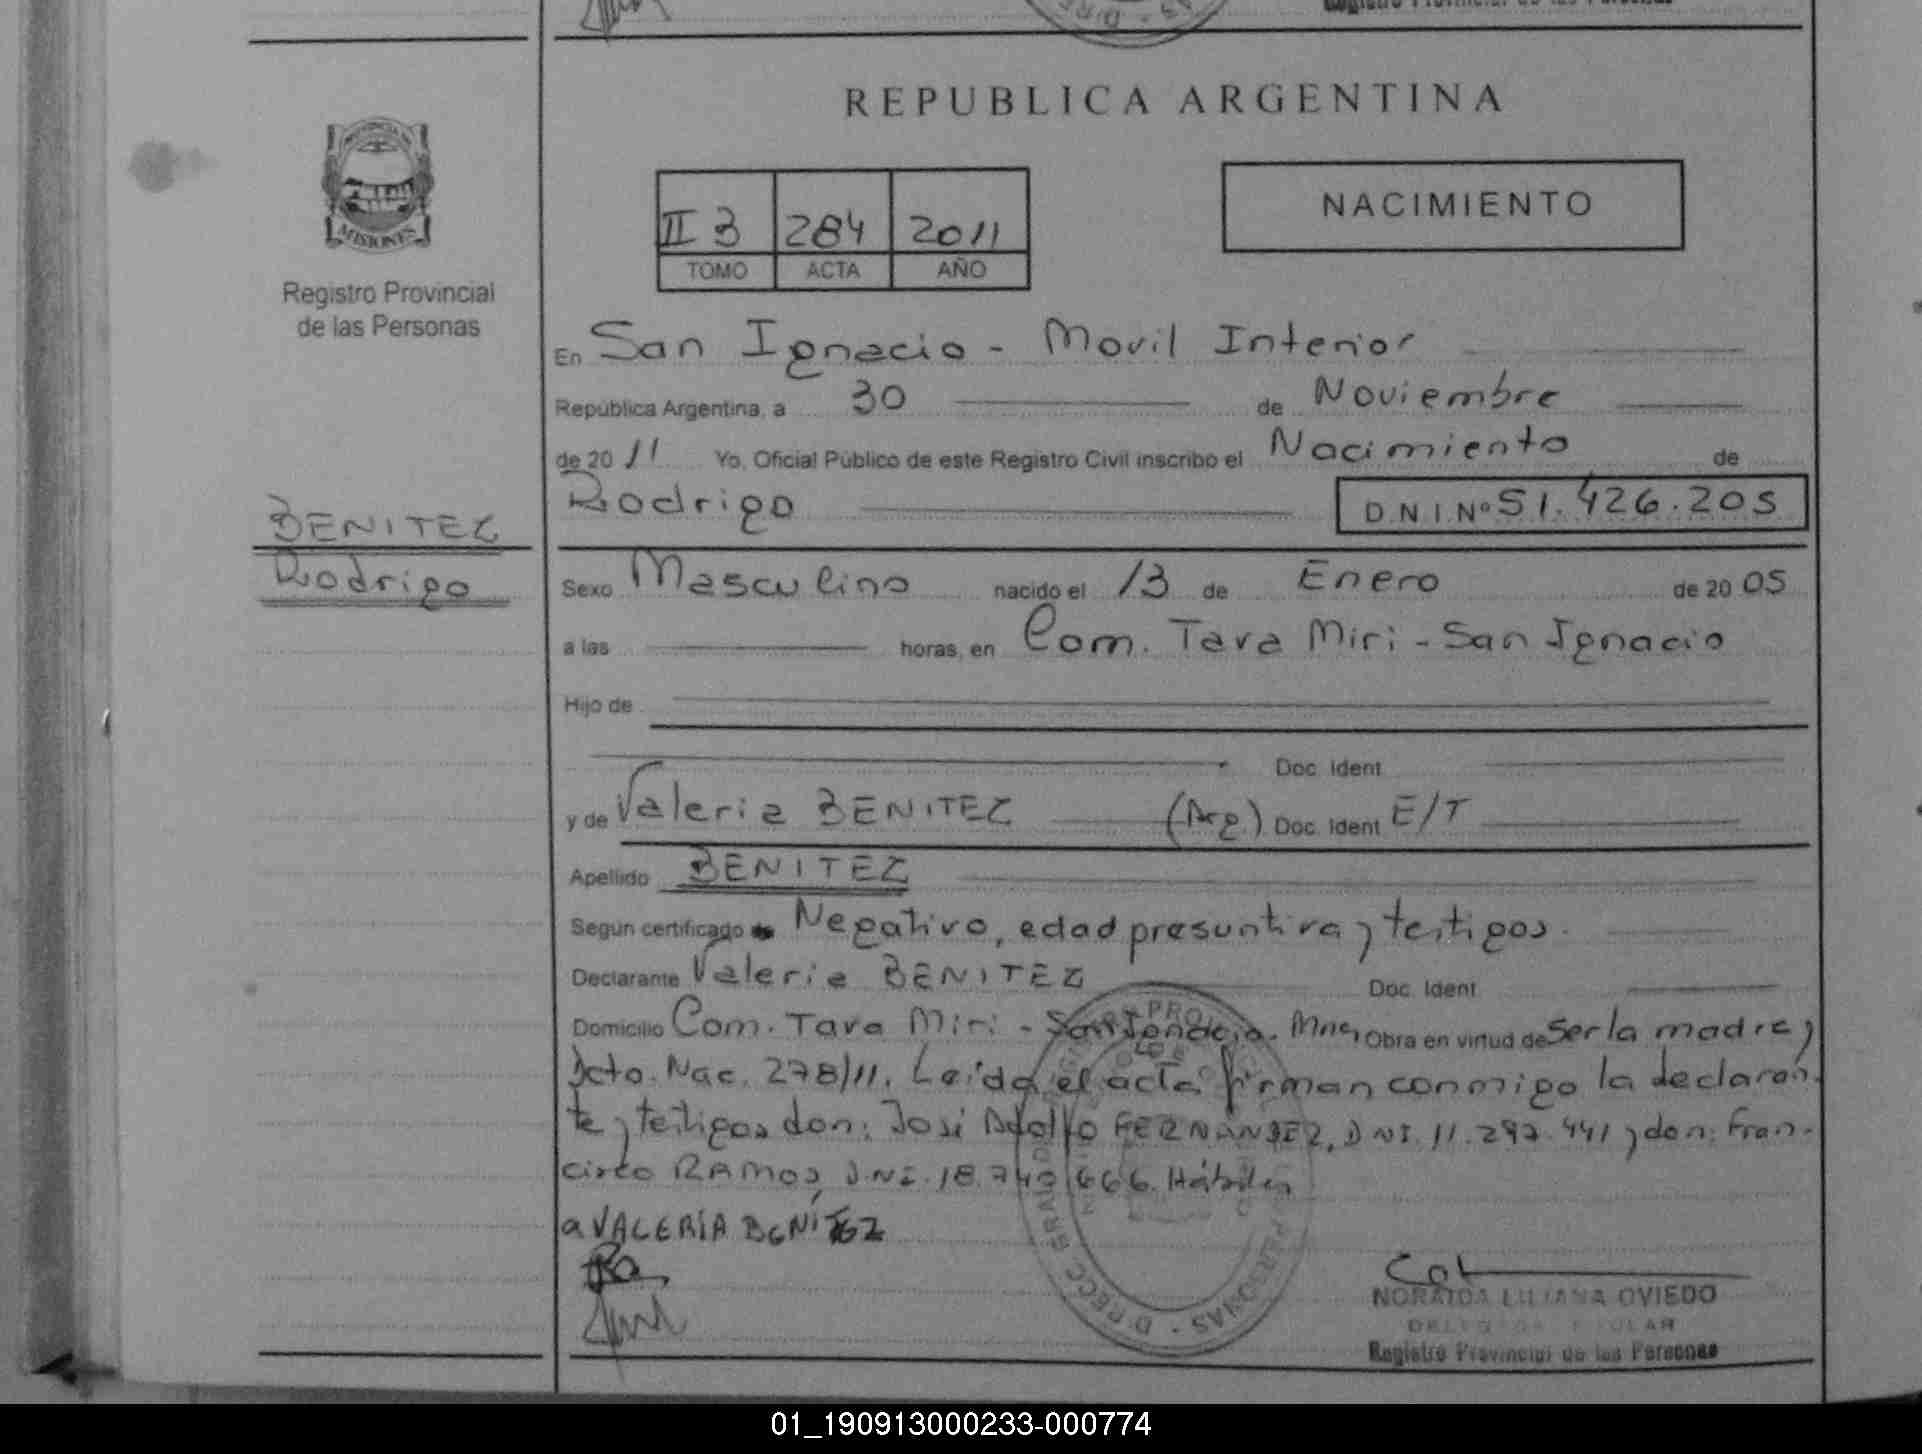 REPUBLICA ARGENTINA
PROVINCIA DE
MISIONES
Registro Provincial
de las Personas
II 3 284 2011
TOMO ACTA AÑO
NACIMIENTO
En San Ignacio - Movil Interior
República Argentina, a 30 de Noviembre
de 20 11 Yo, Oficial Público de este Registro Civil inscribo el Nacimiento de
Rodrigo D.N.I.Nº 51.426.205
BENITEZ
Rodrigo
Sexo Masculino nacido el 13 de Enero de 20 05
a las horas, en Com. Tava Miri - San Ignacio
Hijo de
Doc. Ident
y de Valeria BENITEZ (Arg) Doc. Ident E/T
Apellido BENITEZ
Según certificado Negativo, edad presuntiva y testigos.
Declarante Valeria BENITEZ Doc. Ident
Domicilio Com. Tava Miri - San Ignacio. Mnes, Obra en virtud de Ser la madre y
Dcto. Nac. 278/11. Leída el acta firman conmigo la declaran
te y testigos don: José Adolfo FERNANDEZ, DNI. 11.297.441 y don: Fran-
cisco RAMOS, DNI. 18.740.666. Hábiles
a VALERÍA BENÍTEZ
NORAIDA LILIANA OVIEDO
Registro Provincial de las Personas
01_190913000233-000774